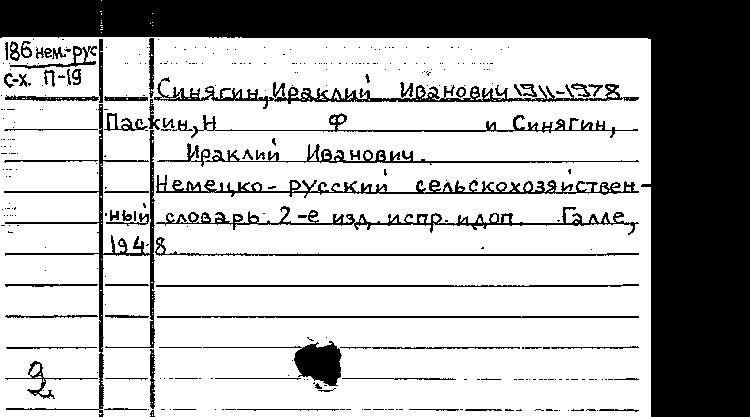 186 нем.-рус
с-х. П-19
Синягин, Ираклий Иванович 1911-1978
Паскин, Н Ф и Синягин,
Ираклий Иванович.
Немецко-русский сельскохозяйствен-
ный словарь. 2-е изд. испр. и доп. Галле,
1948.
2